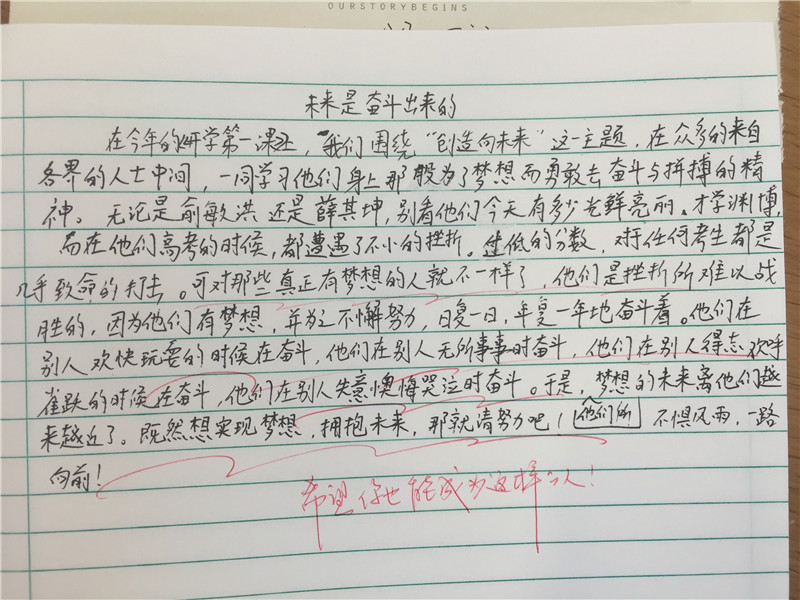 OURSTORYBEGINS
未来是奋斗出来的
在今年的研学第一课上，我们围绕“创造向未来”这一主题，在众多的来自
各界的人士中间，一同学习他们身上那般为了梦想而勇敢去奋斗与拼搏的精
神。无论是俞敏洪还是薛其坤，别看他们今天有多少光鲜亮丽、才学渊博，
而在他们高考的时候，都遭遇了不小的挫折。过低的分数，对于任何考生都是
几乎致命的打击。可对那些真正有梦想的人就不一样了，他们是挫折所难以战
胜的，因为他们有梦想，并为之不懈努力，日复一日，年复一年地奋斗着。他们在
别人欢快玩耍的时候在奋斗，他们在别人无所事事时奋斗，他们在别人得志欢呼
雀跃的时候在奋斗，他们在别人失意懊悔哭泣时奋斗。于是，梦想的未来离他们越
来越近了。既然想实现梦想，拥抱未来，那就请努力吧！他们所不惧风雨，一路
向前！
希望你也能成为这样的人！